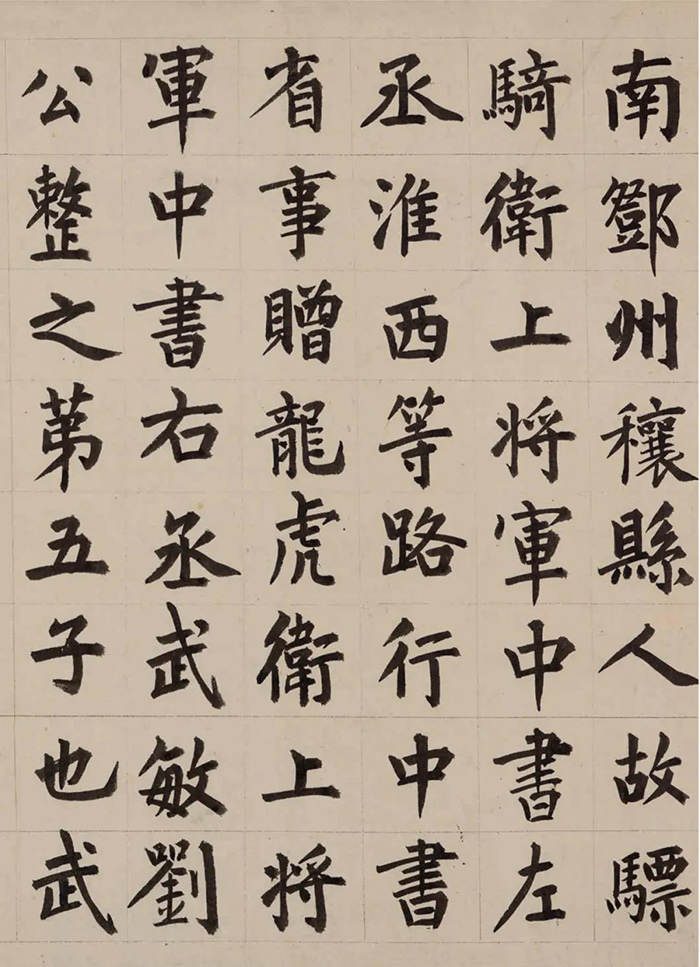 南鄧州穰縣人故驃
騎衛上將軍中書左
丞淮西等路行中書
省事贈龍虎衛上將
軍中書右丞武敏劉
公整之第五子也武